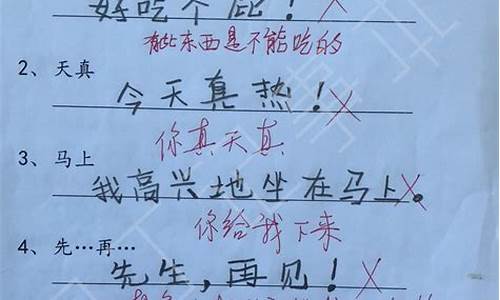 好吃个屁！×
有些东西是不能吃的
2、天真
今天真热！×
你真天真
3、马上
我高兴地坐在马上。×
你给我下来
4、先…再…
先生，再见！×